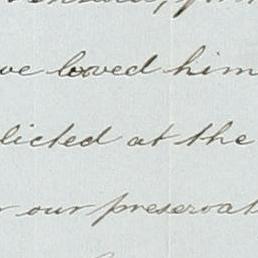 ve loved him
licted at the
r our preservat